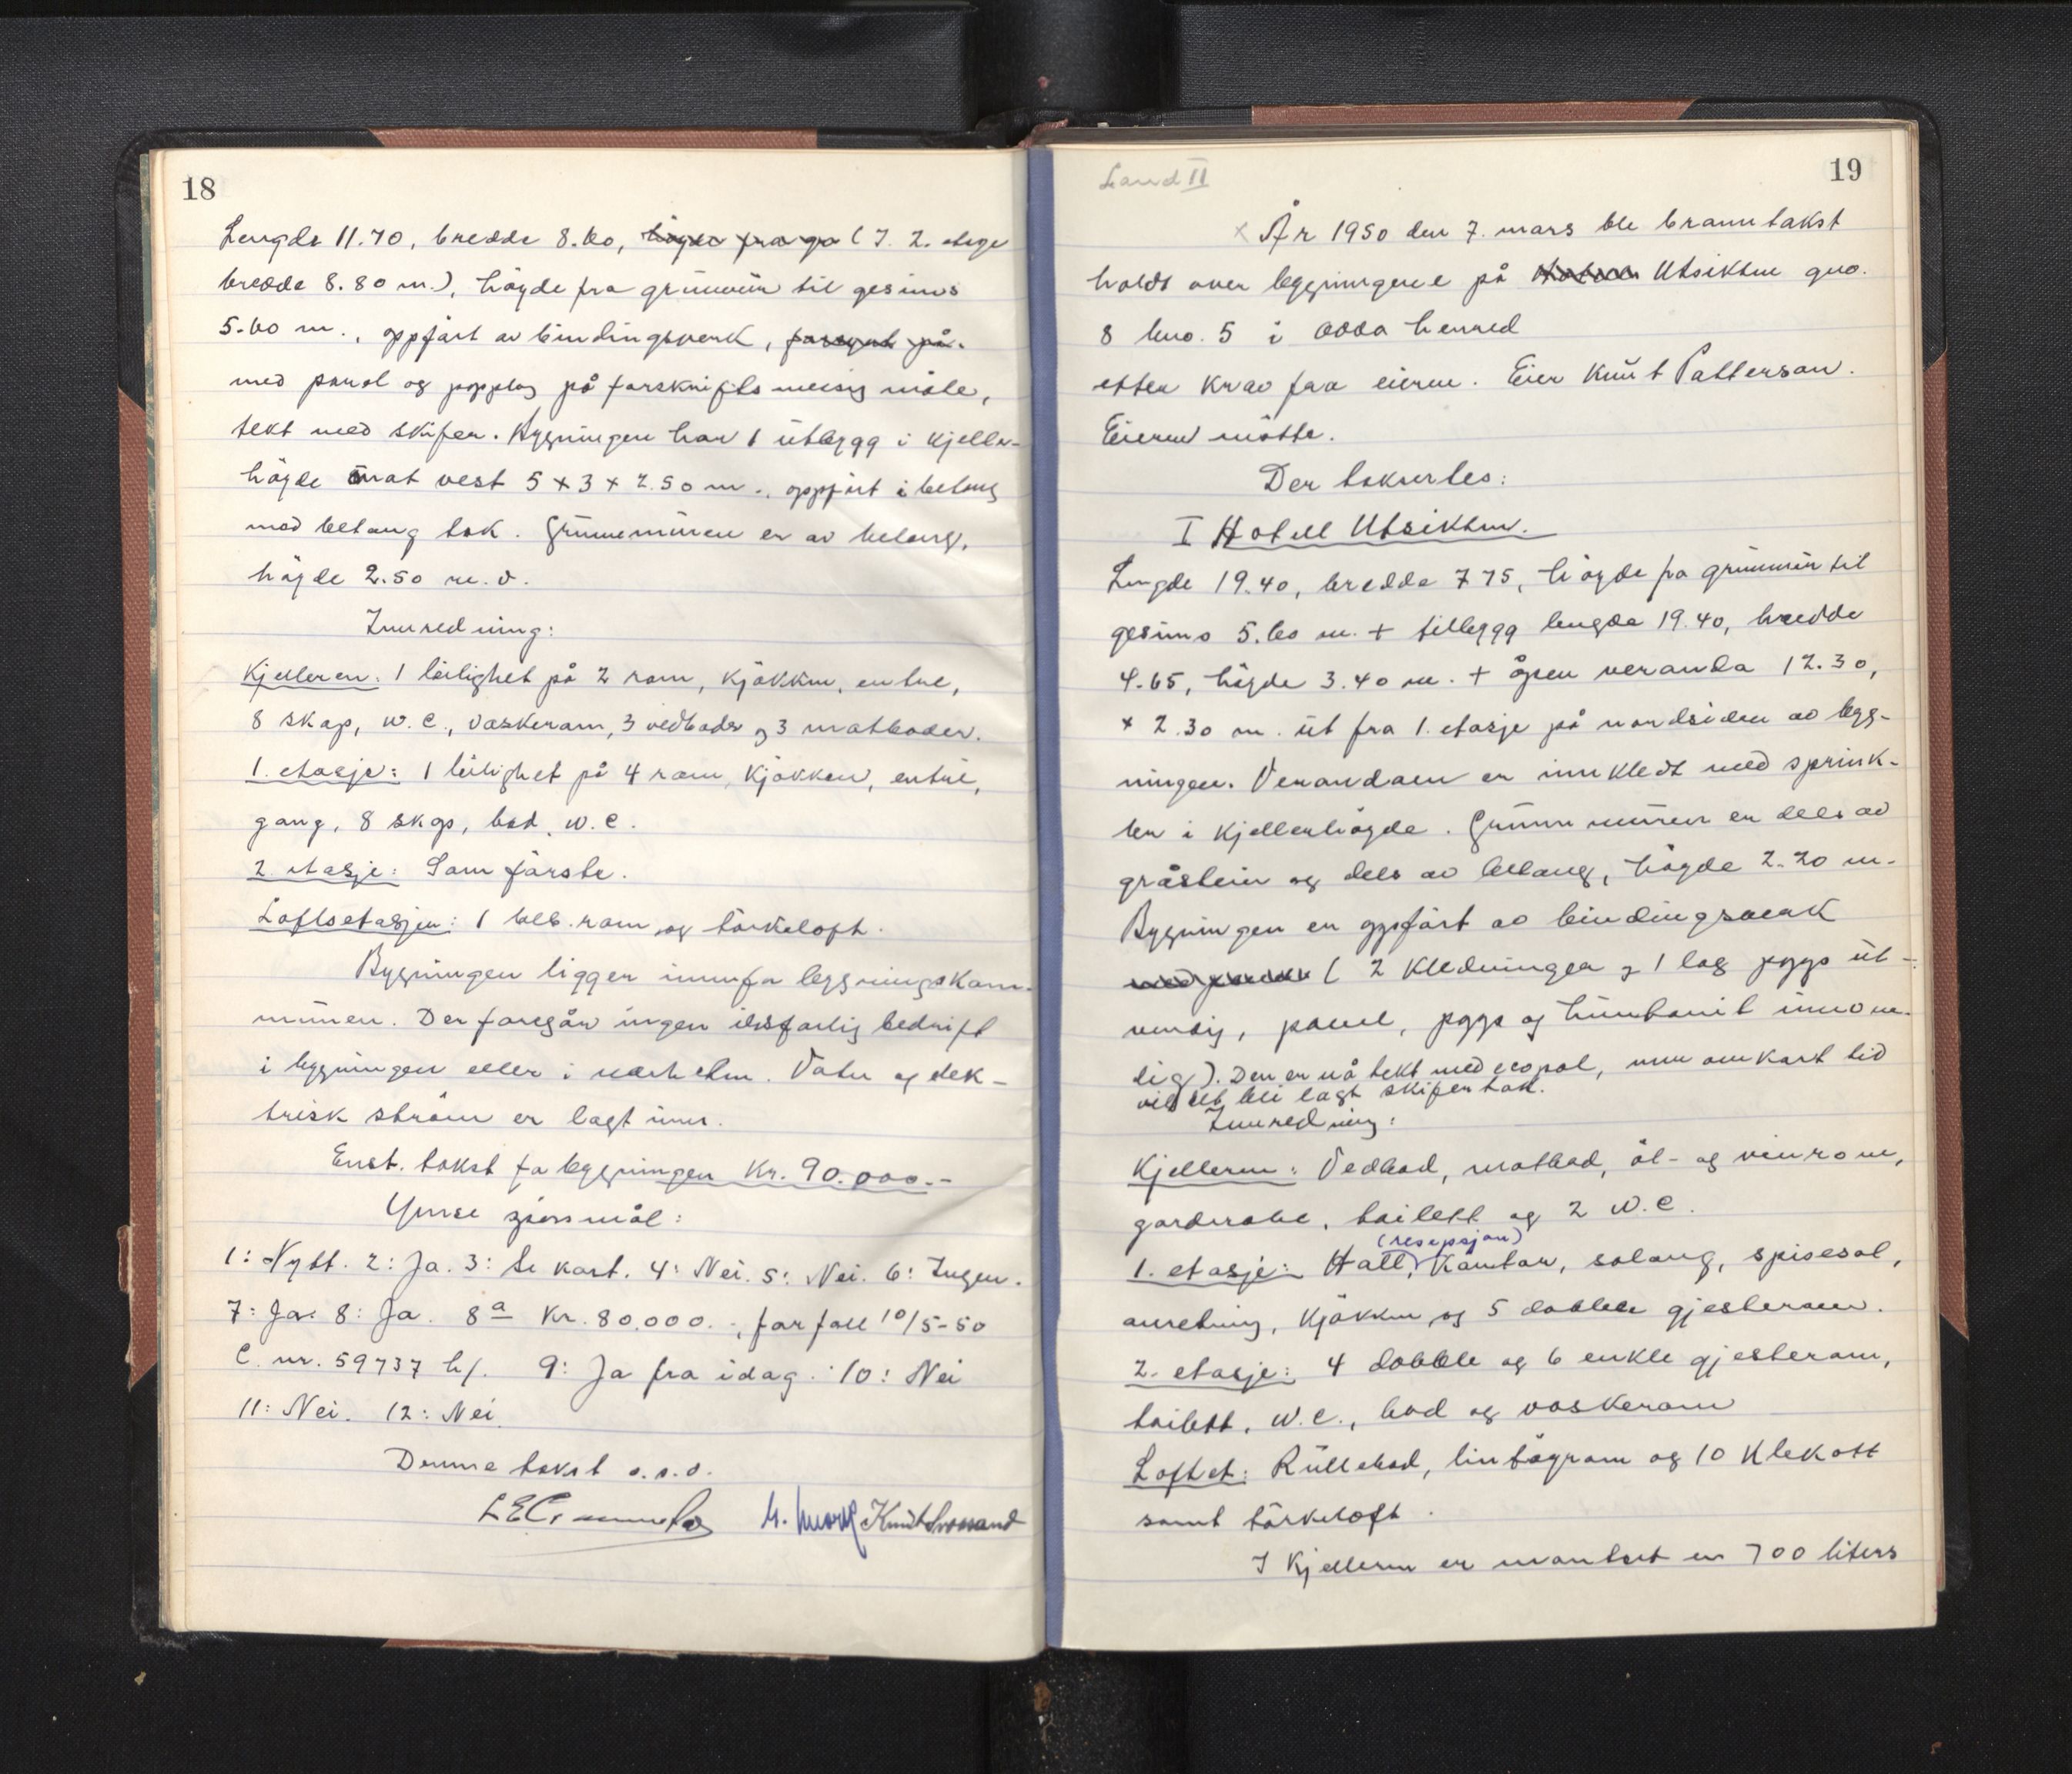 18
Lengde 11.70, bredde 8.60, (I 2. etage
bredde 8.80 m.), høgde fra grunnmur til gesims
5.60 m., oppført av bindingsverk,
med panel og papplag på forskriftsmessig måte,
tekt med skifer. Bygningen har 1 utbygg i kjeller-
høgde mot vest 5 x 3 x 2.50 m., oppført i betong
med betong tak. Grunnmuren er av betong,
høgde 2.50 m.v.
Innredning:
Kjelleren: 1 leilighet på 2 rom, kjøkken, entre,
8 skap, w.c., vaskerom, 3 vedboder og 3 matboder.
1. etasje: 1 leilighet på 4 rom, kjøkken, entré,
gang, 8 skap, bad, w.c.
2. etasje: Som første.
Loftsetasjen: 1 beb. rom og tørkeloft.
Bygningen ligger innafor bygningskom-
munen. Der foregår ingen ildsfarlig bedrift
i bygningen eller i nærheten. Vatn og elek-
trisk strøm er lagt inn.
Enst. takst for bygningen Kr. 90.000.-
Ymse spørsmål:
1: Nytt. 2: Ja. 3: Se kart. 4: Nei. 5: Nei. 6: Ingen.
7: Ja. 8: Ja. 8a Kr. 80.000.-, forfall 10/5-50
C. nr. 59737 hf. 9: Ja fra idag. 10: Nei
11: Nei. 12: Nei.
Denne takst o.s.v.
Land II
19
x År 1950 den 7. mars ble branntakst
holdt over bygningene på Utsikten gno.
8 bno. 5 i Odda herred
etter krav fra eieren. Eier Knut Patterson.
Eieren møtte.
Der taksertes:
I Hotell Utsikten.
Lengde 19.40, bredde 7.75, høgde fra grunnmur til
gesims 5.60 m. + tilbygg lengde 19.40, bredde
4.65, høgde 3.40 m. + åpen veranda 12.30,
x 2.30 m. ut fra 1. etasje på nordsiden av byg-
ningen. Verandaen er innkledt med sprink-
ler i kjellerhøgde. Grunnmuren er dels av
gråstein og dels av betong, høgde 2.20 m.
Bygningen er oppført av bindingsverk
(2 kledninger og 1 lag papp ut-
vendig, panel, papp og huntonit innven-
dig). Den er nå tekt med ecopal, men om kort tid
vil det bli lagt skifertak.
Innredning:
Kjelleren: Vedbod, matbod, øl- og vinrom,
garderobe, toilett og 2 w.c.
(resepsjon)
1. etasje: Hall, Kontor, salong, spisesal,
anretning, kjøkken og 5 doble gjesterom.
2. etasje: 4 dobble og 6 enkle gjesterom,
toilett, w.c., bad og vaskerom
Loftet: Rullebod, lintøyrom og 10 klekott
samt tørkeloft.
I kjelleren er montert en 700 liters